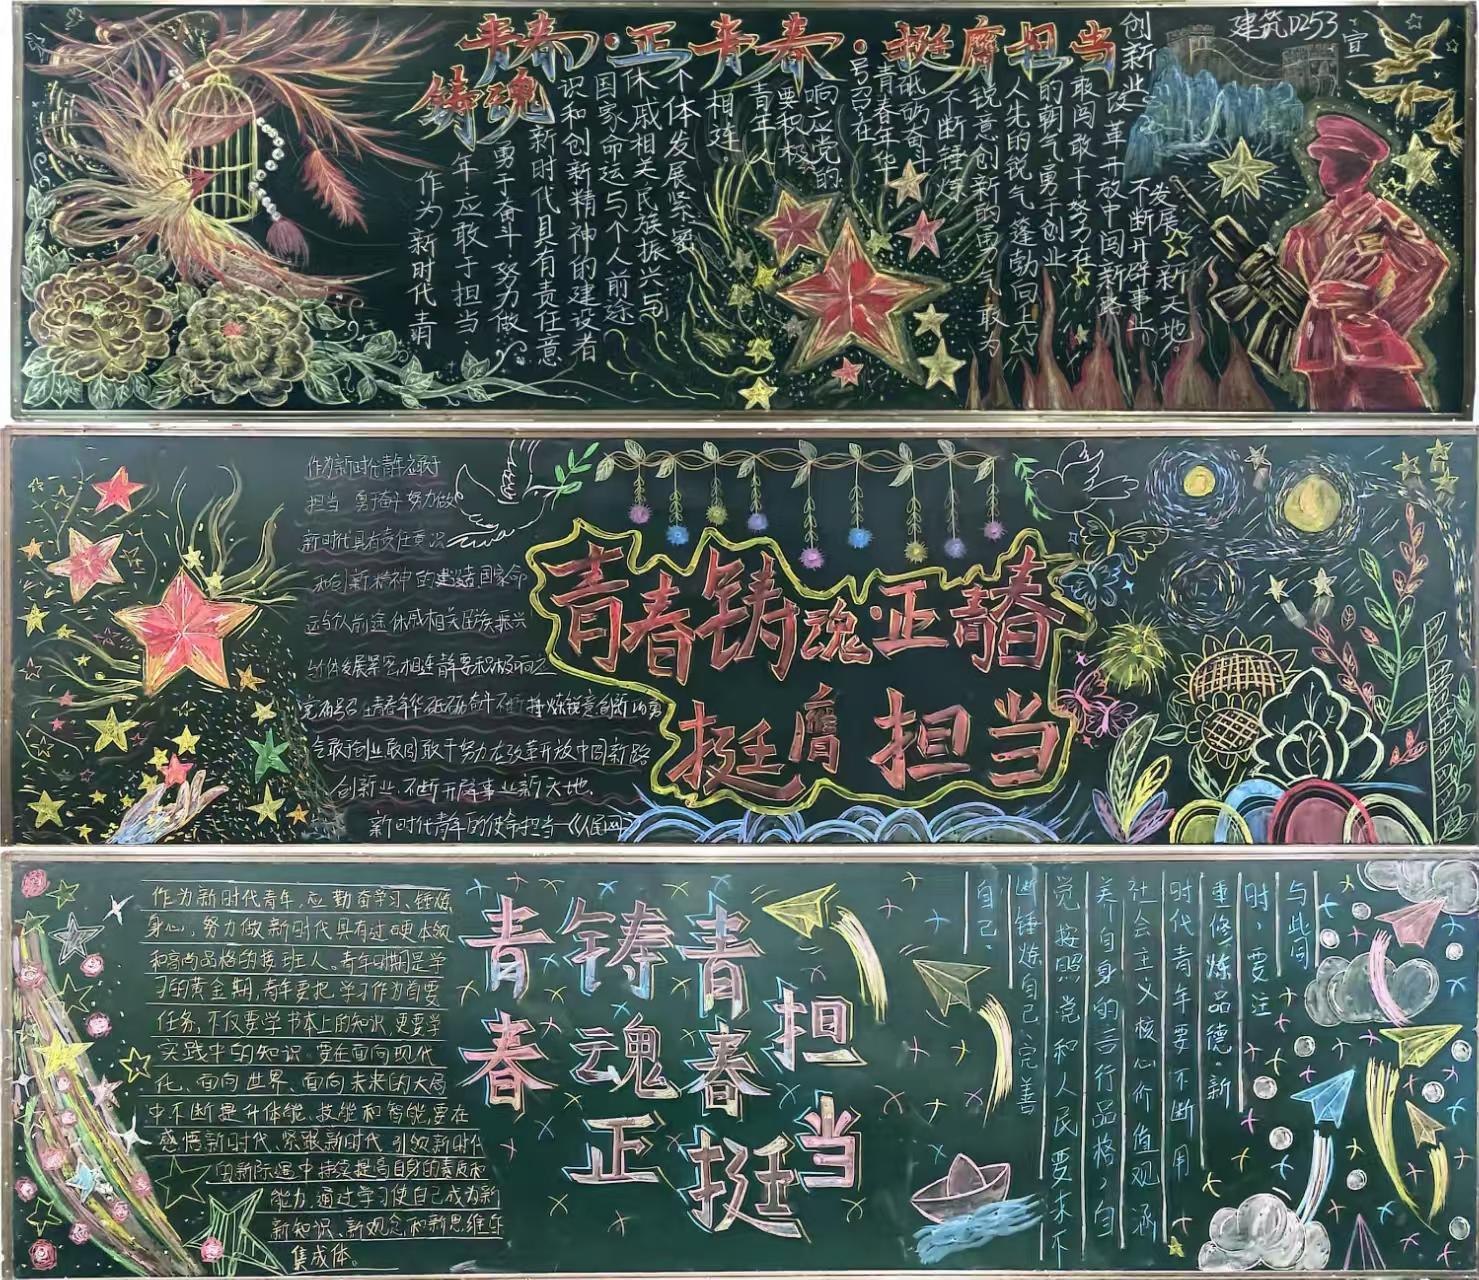 青春·正青春·挺膺担当
铸魂
建筑D253
宣
作为新时代青
年·应敢于担当·
勇于奋斗·努力做
新时代具有责任意
识和创新精神的建设者
国家命运与个人前途
休戚相关民族振兴与
个体发展紧密
相连·
青年人
要积极
响应党的
号召在
青春年华
砥砺奋斗
不断锤炼
锐意创新的勇气敢为
人先的锐气蓬勃向上
的朝气勇于创业
敢闯敢干努力在
改革开放中闯新路
创新业
不断开辟事业
发展新天地·
作为新时代青年应敢于
担当 勇于奋斗努力做
新时代具有责任意识
和创新精神的建设者国家命
运与个人前途休戚相关民族振兴
个体发展紧密相连青年要积极响应
党的号召在青春年华砥砺奋斗不断锤炼锐意创新的勇
气敢于创业敢闯敢干努力在改革开放中闯新路
创新业.不断开辟事业新天地.
新时代青年的使命担当—《人民网》
青春铸魂·正青春
挺膺担当
作为新时代青年，应勤奋学习、锤炼
身心，努力做新时代具有过硬本领
和高尚品格的接班人。青年时期是学
习的黄金期，青年要把学习作为首要
任务，不仅要学书本上的知识，更要学
实践中的知识。要在面向现代
化、面向世界、面向未来的大局
中不断提升体能、技能和智能，要在
感悟新时代、紧跟新时代、引领新时代
的新际遇中持续提高自身的素质和
能力，通过学习使自己成为新
新知识、新观念和新思维在
集成体。
青春
铸魂正
青春挺
担当
与此同
时，要注
重修炼品德·新
时代青年要不断用
社会主义核心价值观涵
养自身的言行品格，自
觉按照党和人民要求不
断锤炼自己、完善
自己。